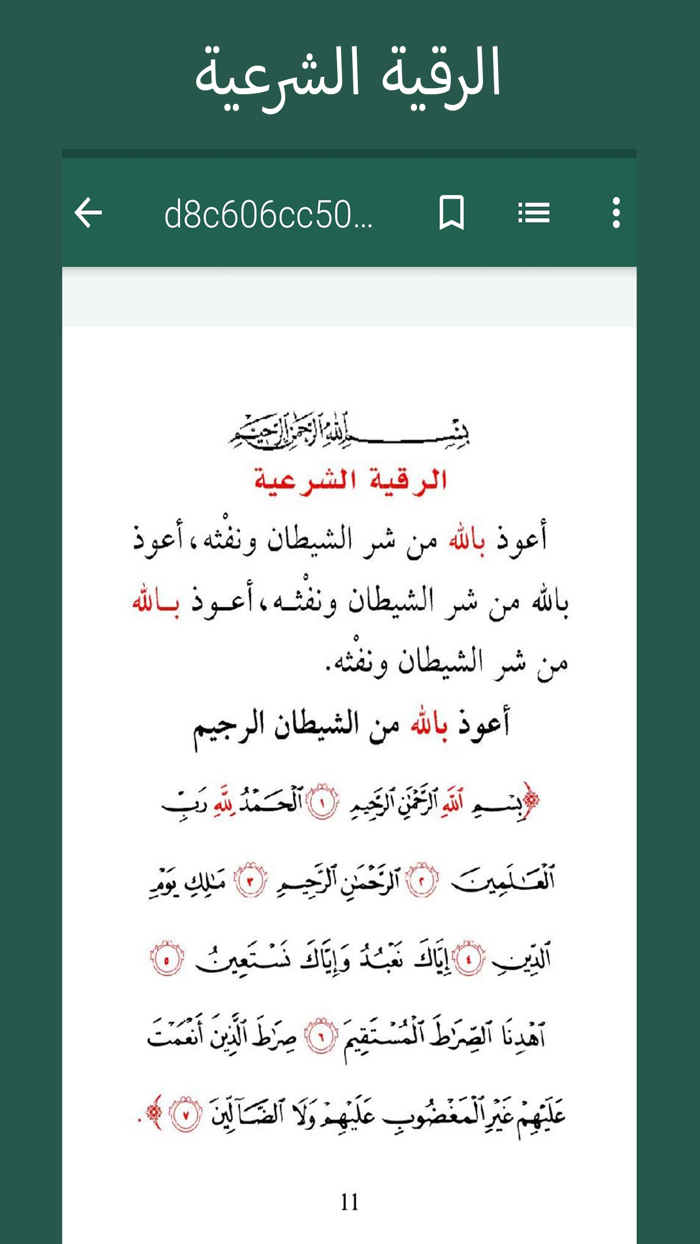 الرقية الشرعية
d8c606cc50...
بِسْمِ اللهِ الرَّحْمَنِ الرَّحِيمِ
الرقية الشرعية
أعوذ بالله من شر الشيطان ونفْثه، أعوذ
بالله من شر الشيطان ونفْثـه، أعـوذ بـالله
من شر الشيطان ونفْثه.
أعوذ بالله من الشيطان الرجيم
﴿بِسْمِ ٱللَّهِ ٱلرَّحْمَٰنِ ٱلرَّحِيمِ ١ ٱلْحَمْدُ لِلَّهِ رَبِّ
ٱلْعَٰلَمِينَ ٢ ٱلرَّحْمَٰنِ ٱلرَّحِيمِ ٣ مَٰلِكِ يَوْمِ
ٱلدِّينِ ٤ إِيَّاكَ نَعْبُدُ وَإِيَّاكَ نَسْتَعِينُ ٥
ٱهْدِنَا ٱلصِّرَٰطَ ٱلْمُسْتَقِيمَ ٦ صِرَٰطَ ٱلَّذِينَ أَنْعَمْتَ
عَلَيْهِمْ غَيْرِ ٱلْمَغْضُوبِ عَلَيْهِمْ وَلَا ٱلضَّآلِّينَ ٧﴾.
11